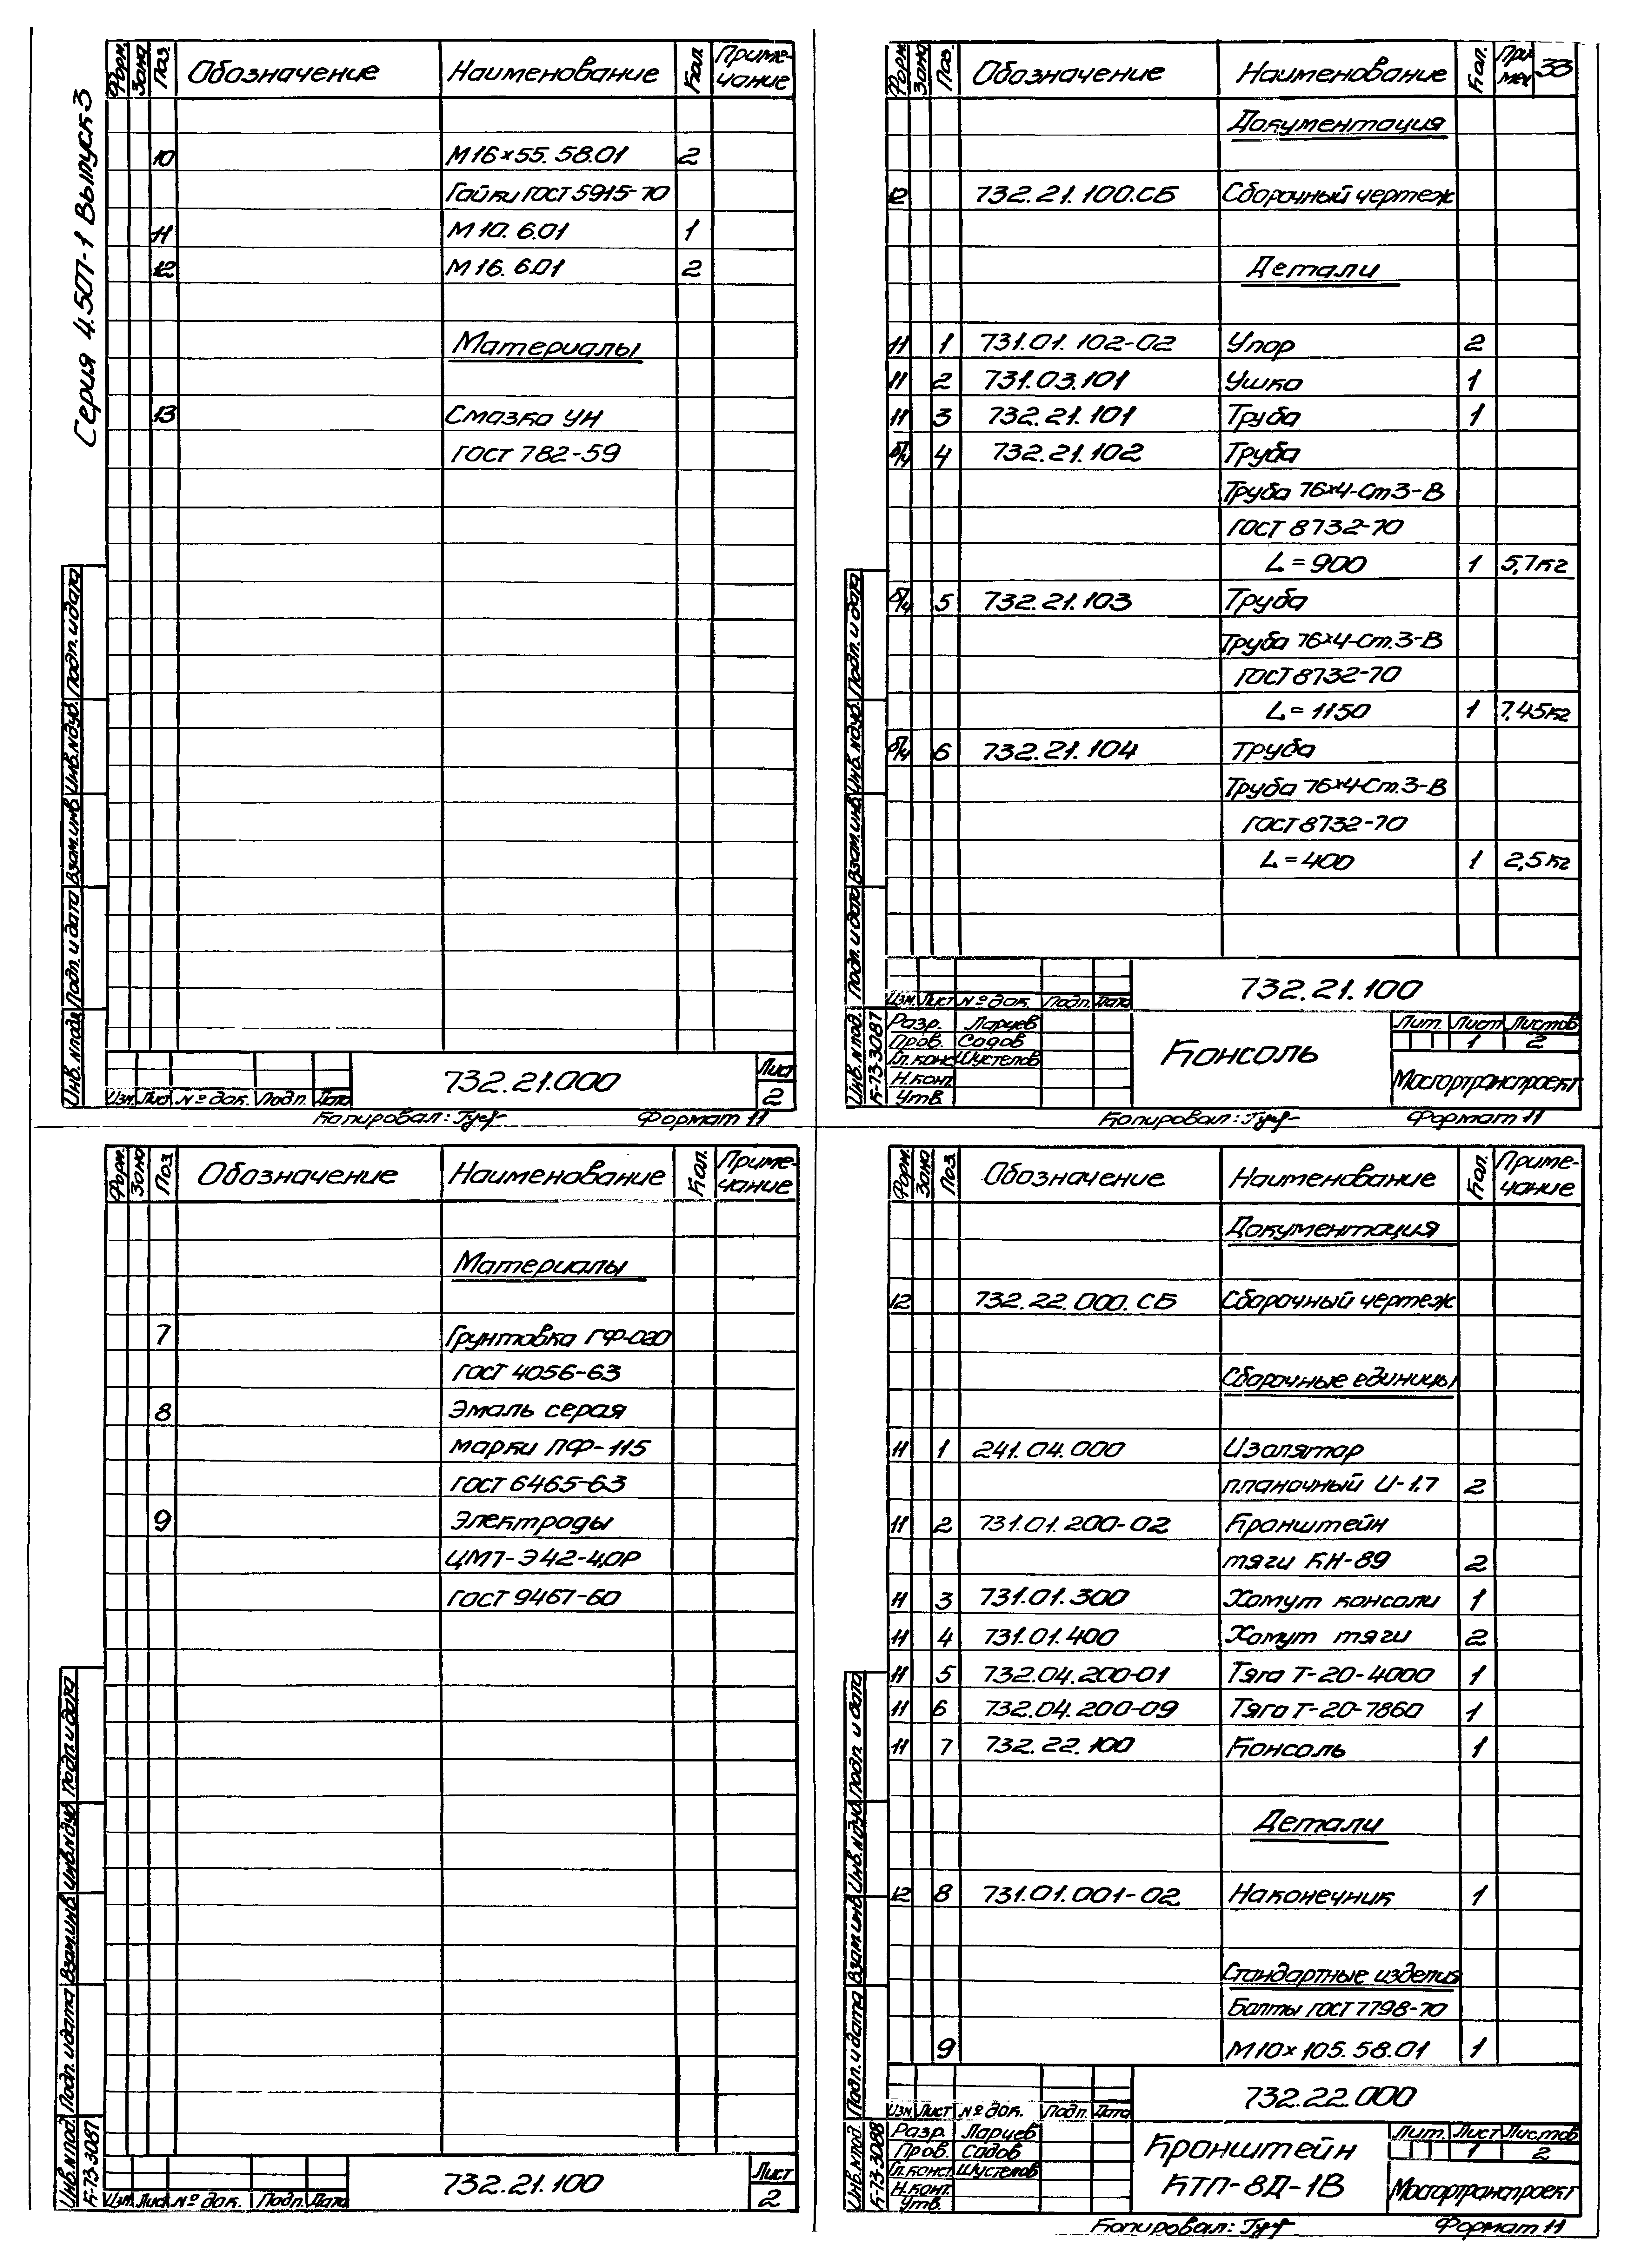 Серия 4.507-1 Выпуск 3
Форм. Зона Поз. Обозначение Наименование Кол. Приме-
чание
10 М16×55.58.01 2
Гайки ГОСТ 5915-70
11 М10.6.01 1
12 М16.6.01 2
Материалы
13 Смазка УН
ГОСТ 782-59
Подп. и дата
Инв.№дуб.
Взам.инв
Подп. и дата
Инв.№подл
Изм. Лист № док. Подп. Дата
732.21.000
Лист
2
Копировал:
Формат 11
Форм. Зона Поз. Обозначение Наименование Кол. При
меч 33
Документация
12 732.21.100.СБ Сборочный чертеж
Детали
11 1 731.01.102-02 Упор 2
11 2 731.03.101 Ушко 1
11 3 732.21.101 Труба 1
б/ч 4 732.21.102 Труба
Труба 76×4-Ст3-В
ГОСТ 8732-70
L=900 1 5,7кг
б/ч 5 732.21.103 Труба
Труба 76×4-Ст.3-В
ГОСТ 8732-70
L=1150 1 7,45кг
б/ч 6 732.21.104 Труба
Труба 76×4-Ст.3-В
ГОСТ 8732-70
L=400 1 2,5кг
Подп. и дата
Инв.№дуб.
Взам.инв
Подп. и дата
Инв.№под.
К-73-3087
732.21.100
Изм. Лист № док. Подп. Дата
Разр. Ларцев
Пров. Садов
Гл.конс Шустепов
Н.конт
Утв.
Консоль
Лит. Лист Листов
1 2
Мосгортранспроект
Копировал:
Формат 11
Форм. Зона Поз. Обозначение Наименование Кол. Приме-
чание
Материалы
7 Грунтовка ГФ-020
ГОСТ 4056-63
8 Эмаль серая
марки ПФ-115
ГОСТ 6465-63
9 Электроды
ЦМ7-Э42-4,0Р
ГОСТ 9467-60
Подп. и дата
Инв.№дуб.
Взам.инв.
Подп. и дата
Инв.№под.
К-73-3087
Изм. Лист № док. Подп. Дата
732.21.100
Лист
2
Форм. Зона Поз. Обозначение Наименование Кол. Приме-
чание
Документация
12 732.22.000.СБ Сборочный чертеж
Сборочные единицы
11 1 241.04.000 Изолятор
планочный И-1,7 2
11 2 731.01.200-02 Кронштейн
тяги КН-89 2
11 3 731.01.300 Хомут консоли 1
11 4 731.01.400 Хомут тяги 2
11 5 732.04.200-01 Тяга Т-20-4000 1
11 6 732.04.200-09 Тяга Т-20-7860 1
11 7 732.22.100 Консоль 1
Детали
12 8 731.01.001-02 Наконечник 1
Стандартные изделия
Болты ГОСТ 7798-70
9 М10×105.58.01 1
Подп. и дата
Инв.№дуб
Взам.инв
Подп. и дата
Инв.№под.
К-73-3088
732.22.000
Изм. Лист № док. Подп. Дата
Разр. Ларцев
Пров. Садов
Гл.конст Шустепов
Н.конт.
Утв.
Кронштейн
КТП-8Д-1В
Лит. Лист Листов
1 2
Мосгортранспроект
Копировал:
Формат 11